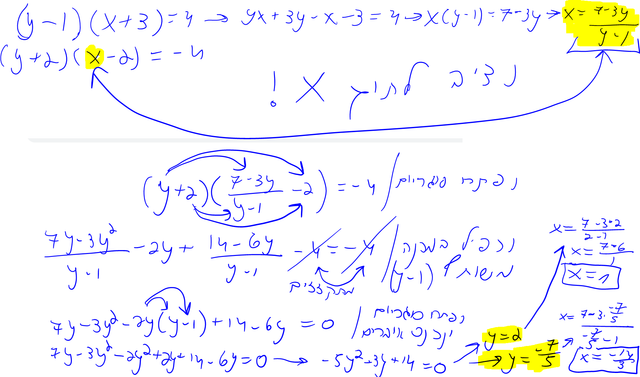 (y-1)(x+3)=4 → yx+3y-x-3=4 → x(y-1)=7-3y → x=\frac{7-3y}{y-1}
(y+2)(x-2)=-4
נציב לתוך x!
(y+2)(\frac{7-3y}{y-1}-2)=-4 / נפתח סוגריים
\frac{7y-3y^2}{y-1}-2y+\frac{14-6y}{y-1}-4=-4 / נכפיל במכנה
משותף (y-1)
מתקזזים
7y-3y^2-2y(y-1)+14-6y=0 / נפתח סוגריים
ונכנס איברים
7y-3y^2-2y^2+2y+14-6y=0 → -5y^2+3y+14=0 → y=2
→ y=\frac{-7}{5}
x=\frac{7-3·2}{2-1}
x=\frac{7-6}{1}
x=1
x=\frac{7-3·\frac{-7}{5}}{\frac{-7}{5}-1}